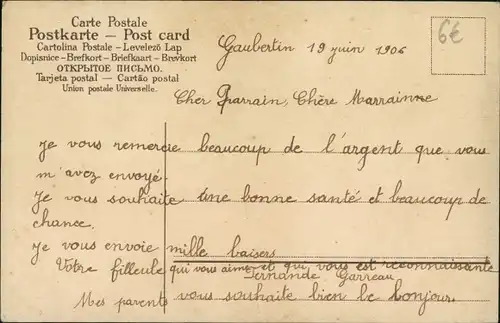 Carte Postale
Postkarte – Post card
Cartolina Postale – Levelező Lap
Dopisnice – Brefkort – Briefkaart – Brevkort
ОТКРЫТОЕ ПИСЬМО.
Tarjeta postal — Cartão postal
Union postale Universelle.
6€
Gaubertin 19 juin 1906
Cher Parrain, Chère Marrainne
je vous remercie beaucoup de l'argent que vous
m'avez envoyé.
Je vous souhaite une bonne santé et beaucoup de
chance.
je vous envoie mille baisers
Votre filleule qui vous aime et qui vous est reconnaissante
Fernande Garreau
Mes parents vous souhaite bien le bonjour.